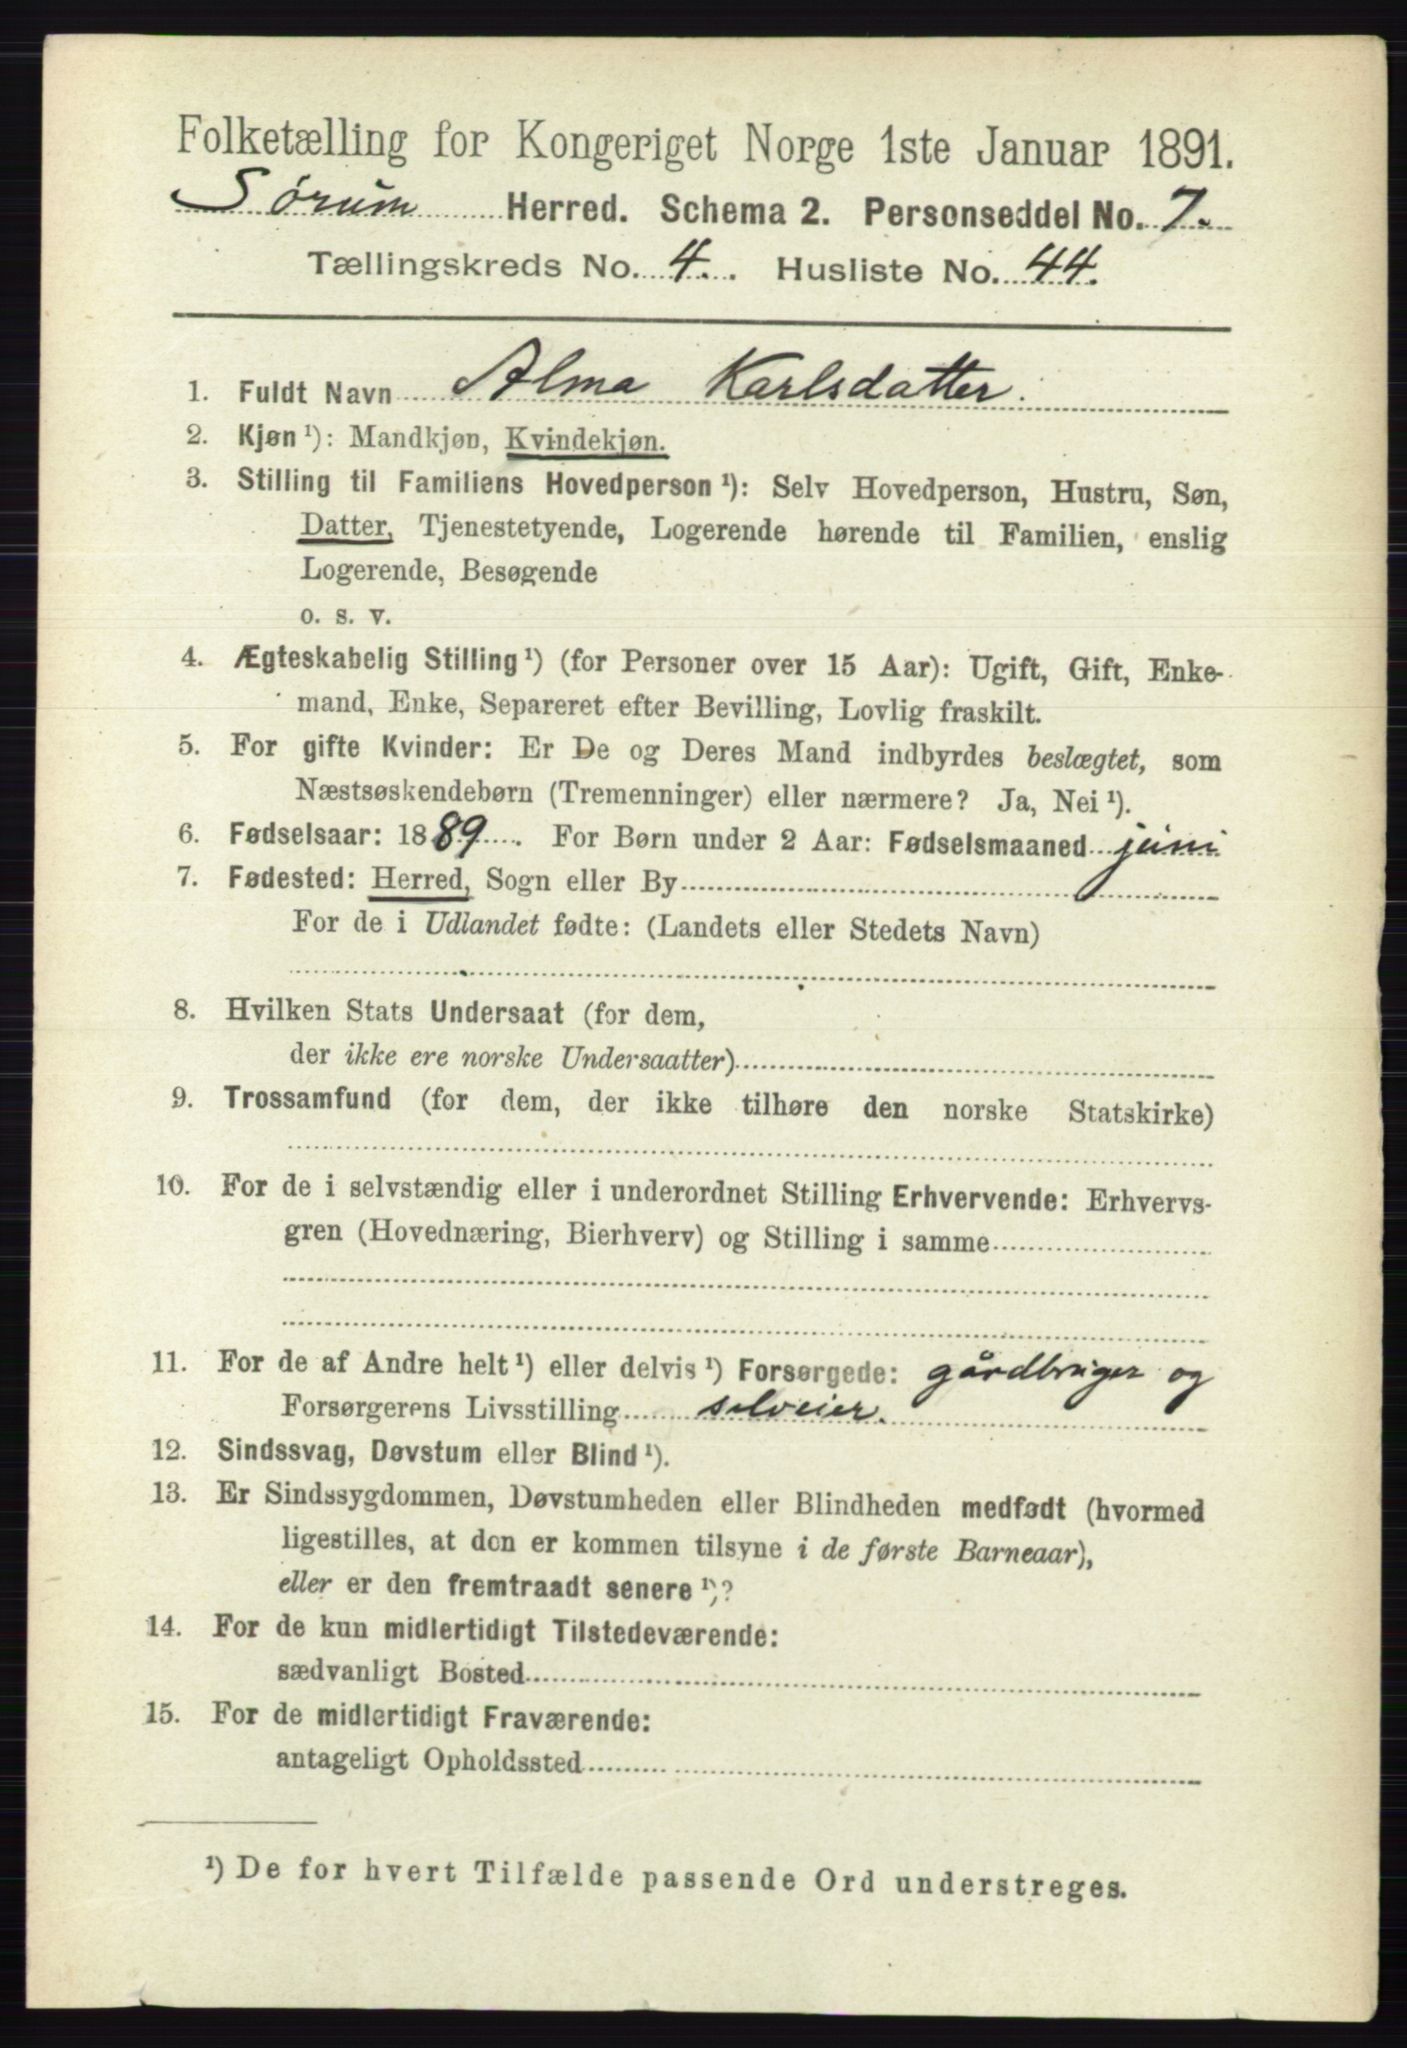 Folketælling for Kongeriget Norge 1ste Januar 1891.
Sørum Herred. Schema 2. Personseddel No. 7.
Tællingskreds No. 4. Husliste No. 44.
1. Fuldt Navn Alma Karlsdatter.
2. Kjøn ¹): Mandkjøn, Kvindekjøn.
3. Stilling til Familiens Hovedperson ¹): Selv Hovedperson, Hustru, Søn,
Datter, Tjenestetyende, Logerende hørende til Familien, enslig
Logerende, Besøgende
o. s. v.
4. Ægteskabelig Stilling ¹) (for Personer over 15 Aar): Ugift, Gift, Enke-
mand, Enke, Separeret efter Bevilling, Lovlig fraskilt.
5. For gifte Kvinder: Er De og Deres Mand indbyrdes beslægtet, som
Næstsøskendebørn (Tremenninger) eller nærmere? Ja, Nei ¹).
6. Fødselsaar: 1889. For Børn under 2 Aar: Fødselsmaaned juni
7. Fødested: Herred, Sogn eller By
For de i Udlandet fødte: (Landets eller Stedets Navn)
8. Hvilken Stats Undersaat (for dem,
der ikke ere norske Undersaatter)
9. Trossamfund (for dem, der ikke tilhøre den norske Statskirke)
10. For de i selvstændig eller i underordnet Stilling Erhvervende: Erhvervs-
gren (Hovednæring, Bierhverv) og Stilling i samme
11. For de af Andre helt ¹) eller delvis ¹) Forsørgede: gårdbruger og
Forsørgerens Livsstilling selveier.
12. Sindssvag, Døvstum eller Blind ¹).
13. Er Sindssygdommen, Døvstumheden eller Blindheden medfødt (hvormed
ligestilles, at den er kommen tilsyne i de første Barneaar),
eller er den fremtraadt senere ¹)?
14. For de kun midlertidigt Tilstedeværende:
sædvanligt Bosted
15. For de midlertidigt Fraværende:
antageligt Opholdssted
¹) De for hvert Tilfælde passende Ord understreges.